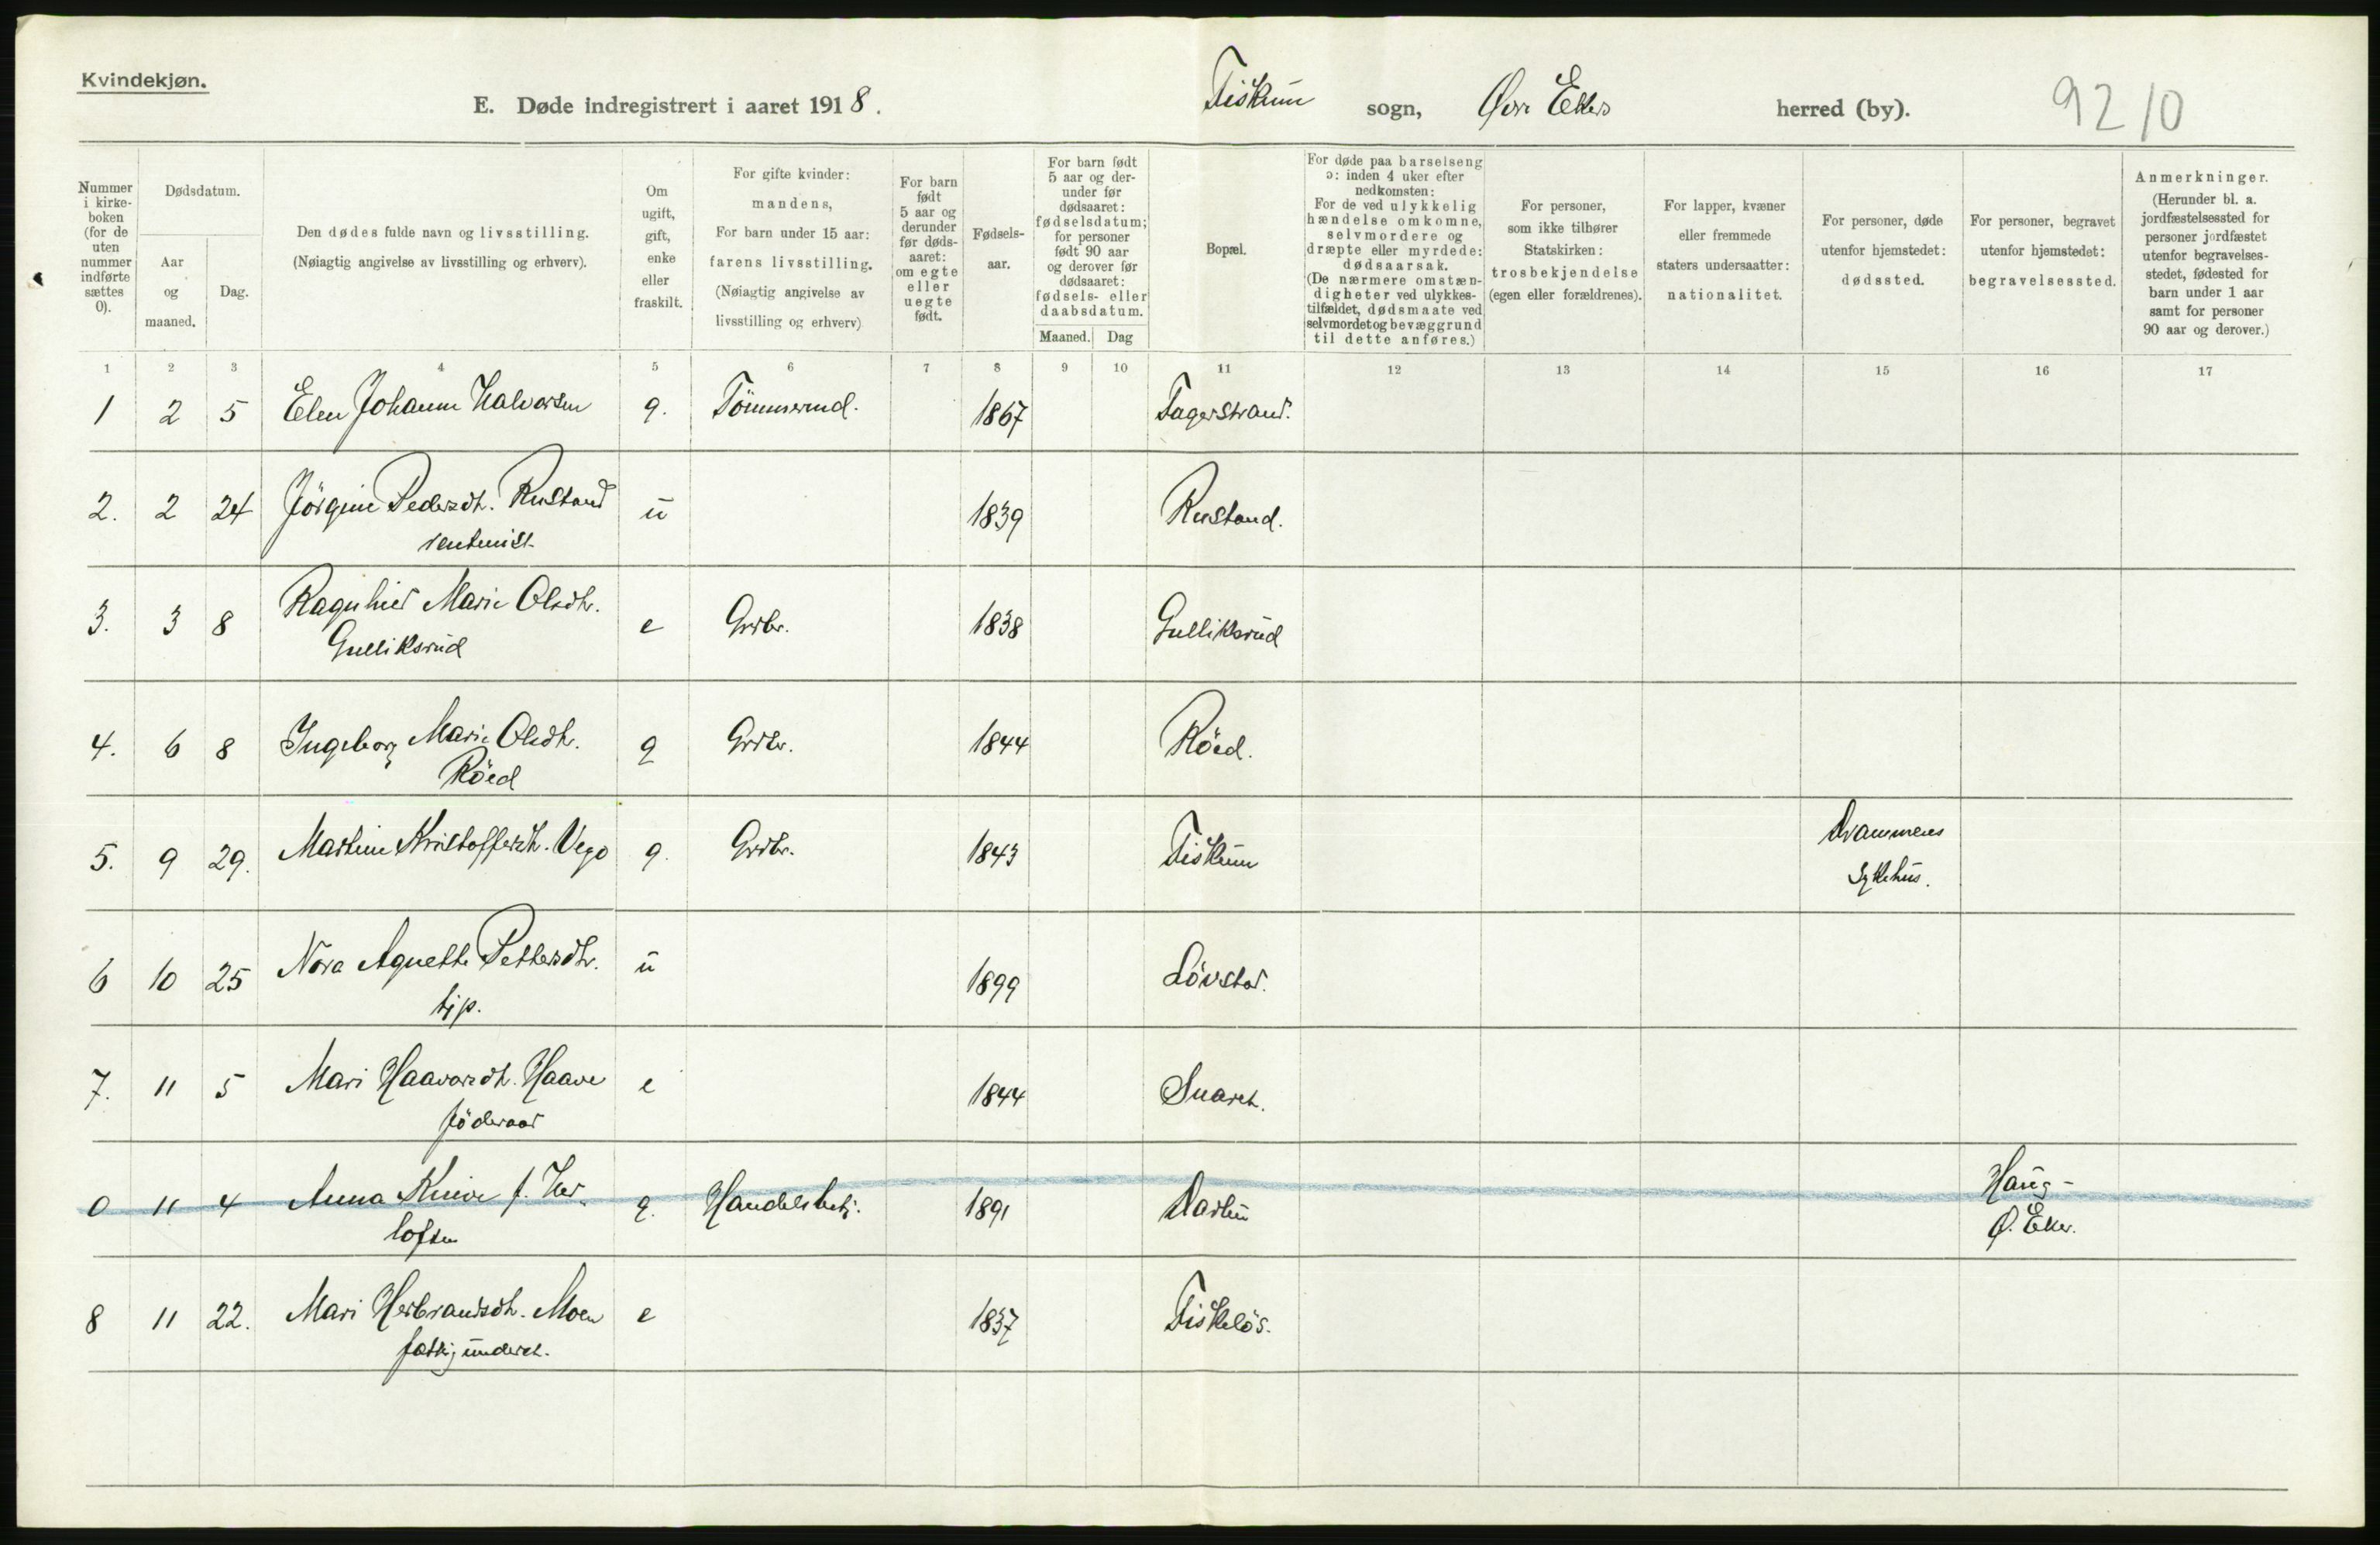 Kvindekjøn.
E. Døde indregistrert i aaret 1918.
Fiskum sogn, Øvre Ekers herred (by).
92 10
Nummer i kirkeboken (for de uten nummer indførte sættes 0).
Dødsdatum.
Aar og maaned.
Dag.
Den dødes fulde navn og livsstilling.
(Nøiagtig angivelse av livsstilling og erhverv).
Om ugift, gift, enke eller fraskilt.
For gifte kvinder: mandens,
For barn under 15 aar: farens livsstilling.
(Nøiagtig angivelse av livsstilling og erhverv)
For barn født 5 aar og derunder før dødsaaret: om egte eller uegte født.
Fødselsaar.
For barn født 5 aar og derunder før dødsaaret: fødselsdatum; for personer født 90 aar og derover før dødsaaret: fødsels- eller daabsdatum.
Maaned.
Dag
Bopæl.
For døde paa barselseng ɔ: inden 4 uker efter nedkomsten:
For de ved ulykkelig hændelse omkomne, selvmordere og dræpte eller myrdede: dødsaarsak.
(De nærmere omstændigheter ved ulykkestilfældet, dødsmaate ved selvmordet og bevæggrund til dette anføres.)
For personer, som ikke tilhører Statskirken: trosbekjendelse (egen eller forældrenes).
For lapper, kvæner eller fremmede staters undersaatter: nationalitet.
For personer, døde utenfor hjemstedet: dødssted.
For personer, begravet utenfor hjemstedet: begravelsessted.
Anmerkninger.
(Herunder bl. a. jordfæstelsessted for personer jordfæstet utenfor begravelsesstedet, fødested for barn under 1 aar samt for personer 90 aar og derover.)
1 2 3 4 5 6 7 8 9 10 11 12 13 14 15 16 17
1 2 5 Elen Johanne Halvorsen g. Tömmermd. 1867 Fagerstrand.
2. 2 24 Jörgine Pedersdt. Rustand u 1839 Rustand.
rentenist
3. 3 8 Ragnhild Marie Olsdtr. e Grdbr. 1838 Gulliksrud
Gulliksrud
4. 6 8 Ingeborg Marie Olsdtr. g Grdbr. 1844 Röed.
Röed
5. 9 29. Martine Kristoffersdt. Vego g. Grdbr. 1843 Fiskum Drammens
Sykehus.
6 10 25 Nora Agnethe Pettersdtr. u 1899 Lövstad.
tjp.
7. 11 5 Mari Haavorsdt. Haave e 1844
föderaad
0 11 4 Anna f. Her- g. Handelsbetj. 1891 Haug-
lofsen Ø. Eker.
8 11 22. Mari Herbrandsdt. Moen e 1837 Fiskelös.
fattigunderst.